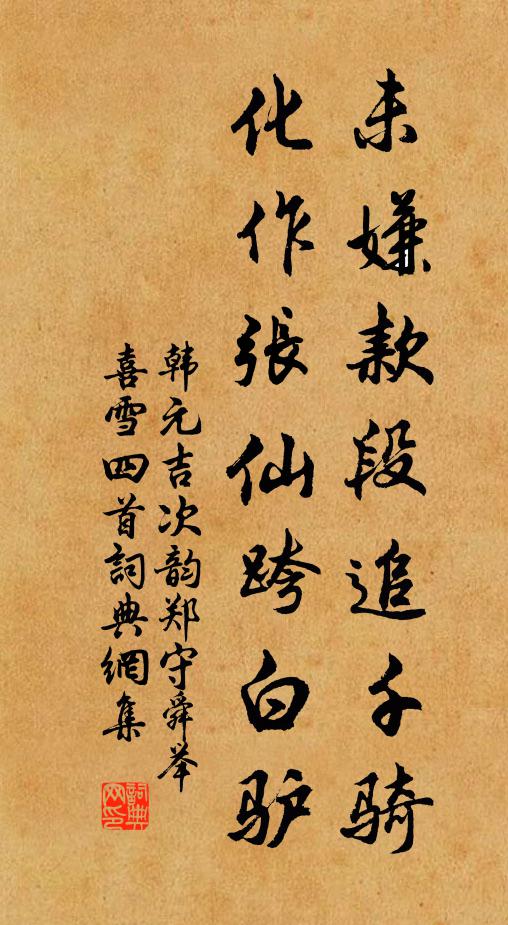 未嫌款段追千骑
化作張仙跨白驴
韩元吉次韵郑守舜举
喜雪四首詞典網集
詞典
网印